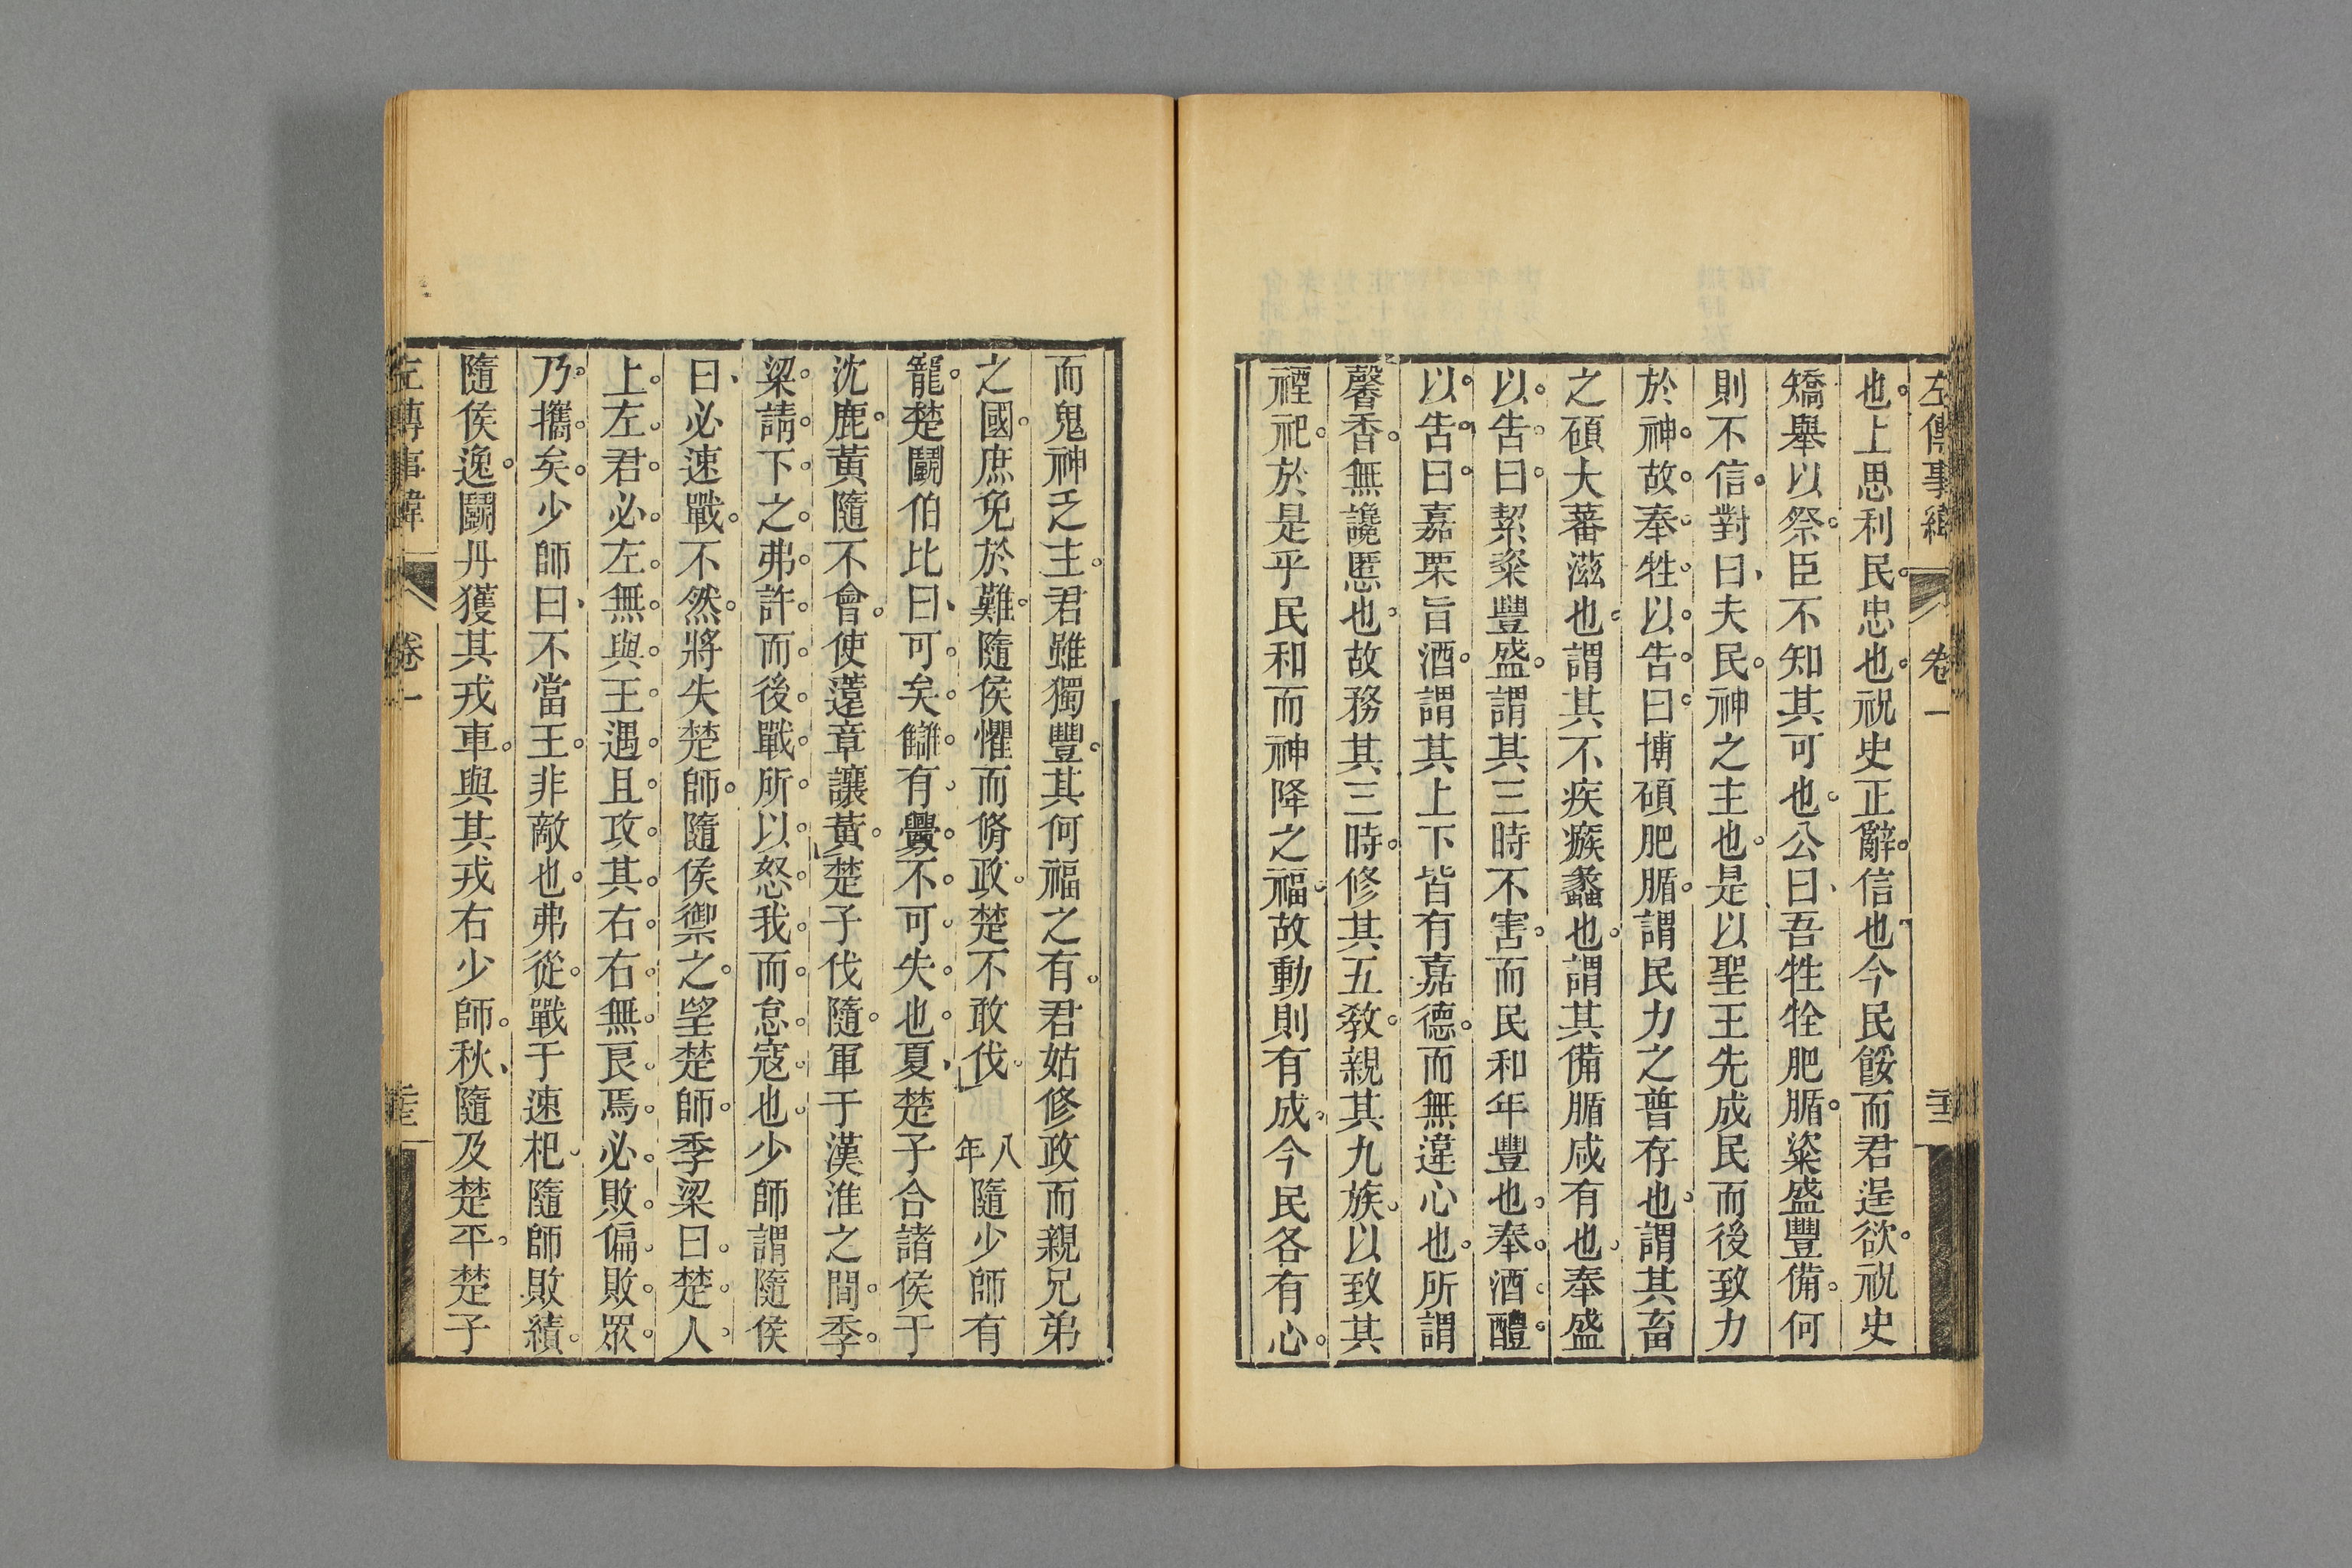 左傳事緯 卷一
也上思利民忠也祝史正辭信也今民餒而君逞欲祝史
矯舉以祭臣不知其可也公曰吾牲牷肥腯粢盛豐備何
則不信對曰夫民神之主也是以聖王先成民而後致力
於神故奉牲以告曰博碩肥腯謂民力之普存也謂其畜
之碩大蕃滋也謂其不疾瘯蠡也謂其備腯咸有也奉盛
以告曰絜粢豐盛謂其三時不害而民和年豐也奉酒醴
以告曰嘉栗旨酒謂其上下皆有嘉德而無違心也所謂
馨香無讒慝也故務其三時修其五教親其九族以致其
禋祀於是乎民和而神降之福故動則有成今民各有心
而鬼神乏主君雖獨豐其何福之有君姑修政而親兄弟
之國庶免於難隨侯懼而脩政楚不敢伐 八年隨少師有
寵楚鬭伯比曰可矣讎有釁不可失也夏楚子合諸侯于
沈鹿黃隨不會使薳章讓黃楚子伐隨軍于漢淮之間季
梁請下之弗許而後戰所以怒我而怠寇也少師謂隨侯
曰必速戰不然將失楚師隨侯禦之望楚師季梁曰楚人
上左君必左無與王遇且攻其右右無良焉必敗偏敗眾
乃攜矣少師曰不當王非敵也弗從戰于速杞隨師敗績
隨侯逸鬭丹獲其戎車與其戎右少師秋隨及楚平楚子
左傳事緯 卷一